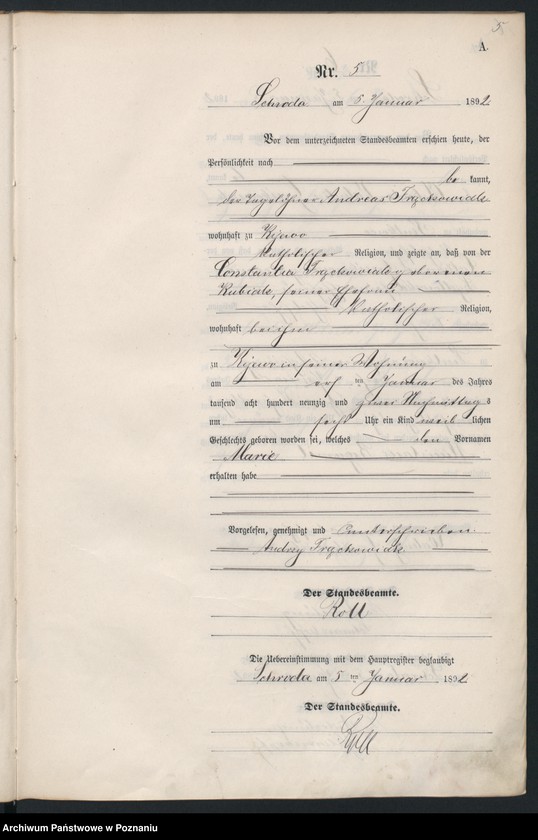 5
A.
Nr. 5
Schroda am 5. Januar 1892.
Vor dem unterzeichneten Standesbeamten erschien heute, der
Persönlichkeit nach
be kannt,
der Tagelöhner Andreas Trąckowiak
wohnhaft zu Kijewo
katholischer Religion, und zeigte an, daß von der
Constantia Trąckowiak, geborenen
Kubiak, seiner Ehefrau
katholischer Religion,
wohnhaft bei ihm
zu Kijewo in seiner Wohnung
am ten Januar des Jahres
tausend acht hundert neunzig und zwei Nachmittags
um sechs Uhr ein Kind weib lichen
Geschlechts geboren worden sei, welches den Vornamen
Marie
erhalten habe
Vorgelesen, genehmigt und unterschrieben
Andrzy Trąckowiak
Der Standesbeamte.
Roll
Die Uebereinstimmung mit dem Hauptregister beglaubigt
Schroda am 5 ten Januar 1892.
Der Standesbeamte.
Roll
Archiwum Państwowe w Poznaniu